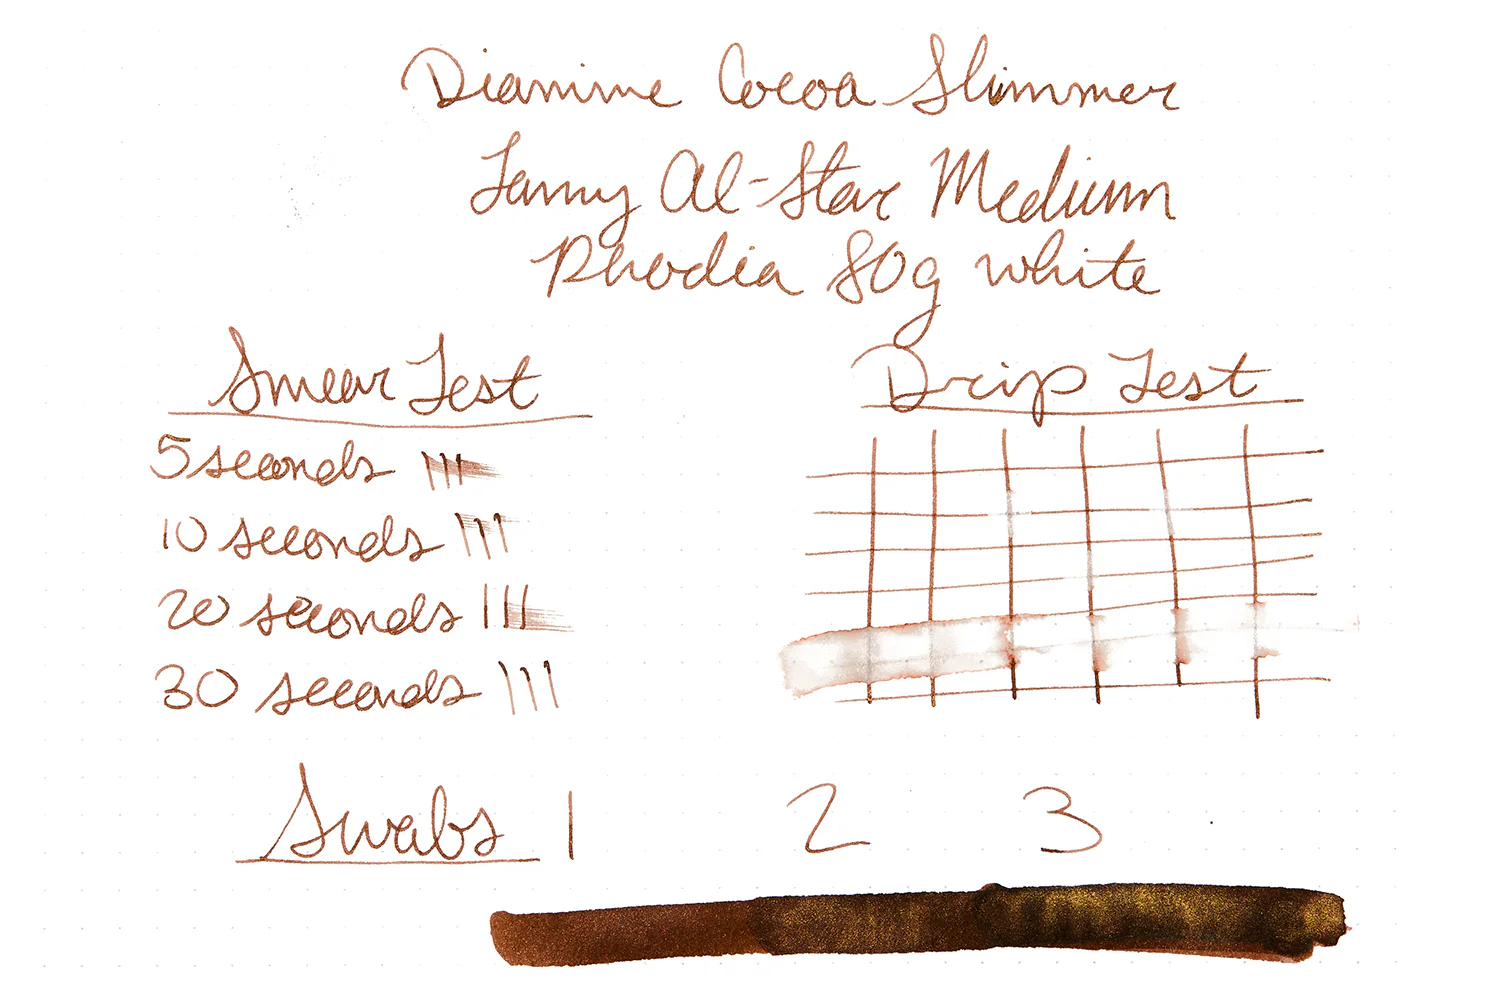 Diamine Cocoa Shimmer
Lamy Al-Star Medium
Rhodia 80g white
Smear Test
5 seconds
10 seconds
20 seconds
30 seconds
Drip Test
Swabs 1 2 3